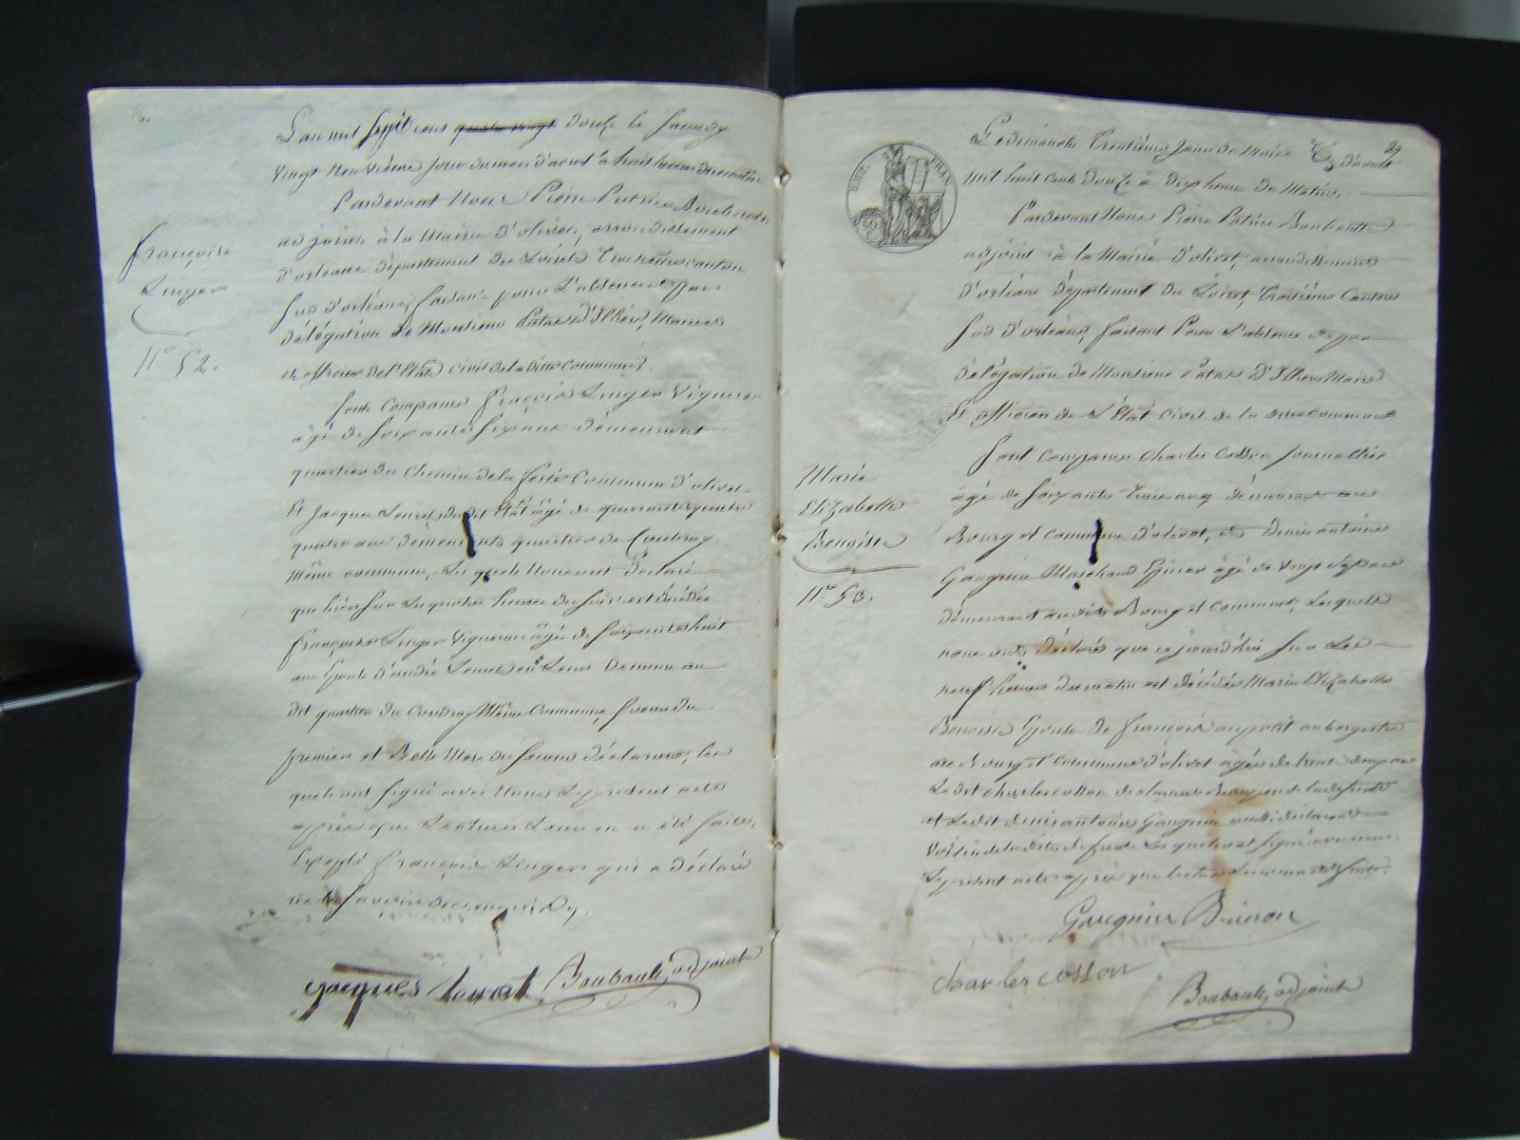 L'an mil huit cens quatre vingt douze le samedy
vingt neuvième jour du mois d'aoust à huit heures du matin
Pardevant Nous Pierre Patrice Boubault
adjoint à la Mairie d'olivet, arrondissement
d'orléans département du Loiret Troisième canton
sud d'orléans, faisant pour l'absence et par
délégation de Monsieur Patas d'Illiers, Maire
et officier de l'Etat civil de la ditte commune
françoise
Linger
N.o 52.
sont comparus françois Linger Vigneron
âgé de soixante six ans demeurant
quartier du chemin de la ferté commune d'olivet
Et Jacques Louret du dit Etat âgé de quarante
quatre ans demeurant quartier du Coudray
même commune, Lesquels nous ont déclaré
que hier sur les quatre heures du soir est décédée
françoise Linger Vigneronne âgée de soixante huit
ans Epouse d' Louret demeurant au
dit quartier du Coudray Même Commune, soeur du
premier et Belle Mere du second déclarans, les
quels ont signé avec Nous Le présent acte
après que Lecture Leur en a été faite,
Excepté françois Linger qui a déclaré
ne savoir de ce enquis
Jacques Louret Boubault, adjoint
29
Le dimanche Trentième jour du Mois d'aoust
mil huit cent douze à dix heures du Matin.
Pardevant Nous Pierre Patrice Boubault
adjoint à la Mairie d'olivet, arrondissement
d'orléans département du Loiret, Troisième Canton
sud d'orléans, faisant Pour L'absence et par
délégation de Monsieur Patas d'Illiers Maire
Et officier de L'Etat civil de la ditte commune
Marie
Elizabethe
Benoiste
N.o 53.
sont comparus Charles Cosson journallier
âgé de soixante ans demeurant au
Bourg et commune d'olivet, et Denis antoine
Gaugnier Marchand Epicier âgé de vingt sept ans
demeurant audit Bourg et commune, Lesquels
nous ont déclaré que ce jourd'hui sur les
neuf heures du matin est décédée Marie Elizabethe
Benoist Epouse de françois aupetit aubergiste
au Bourg et commune d'olivet âgée de trente ans
Le dit charles cosson déclarant de la defunte
et Ledit denis antoine Gaugnier aussi déclarant
voisin de la ditte defunte Lesquels ont signé avec nous
Le présent acte après que lecture Leur en a été faite.
Gaugnier Briéron
Charles cosson
Boubault, adjoint